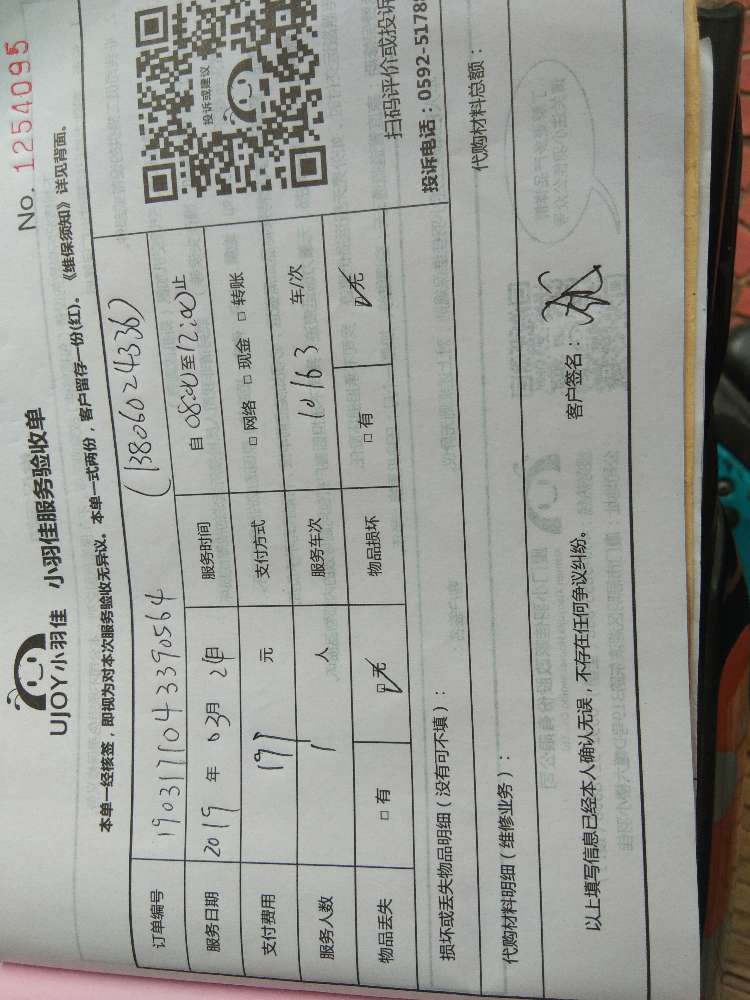 No. 1254095
UJOY小羽佳 小羽佳服务验收单
本单一经核签，即视为对本次服务验收无异议。本单一式两份，客户留存一份(红)。《维保须知》详见背面。
订单编号 1903171043390564 (13806024336)
服务日期 2019 年 03月 日 服务时间 自 08:00 至 12:00 止
支付费用 197 元 支付方式 □ 网络 □ 现金 □ 转账
服务人数 1 人 服务车次 车/次
物品丢失 □ 有 □ 无 物品损坏 □ 有 □ 无
投诉或建议
扫码评价或投诉
投诉电话：0592-5178
损坏或丢失物品明细（没有可不填）：
代购材料明细（维修业务）： 代购材料总额：
以上填写信息已经本人确认无误，不存在任何争议纠纷。 客户签名：